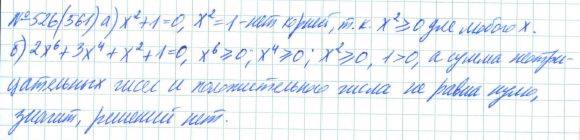 №526(561) а) x²+1=0, x²=1-нет корней, т.к. x²≥0 для любого x.
б) 2x⁶+3x⁴+x²+1=0, x⁶≥0; x⁴≥0; x²≥0, 1>0, а сумма неотри-
цательных чисел и положительного числа не равна нулю,
значит, решений нет.